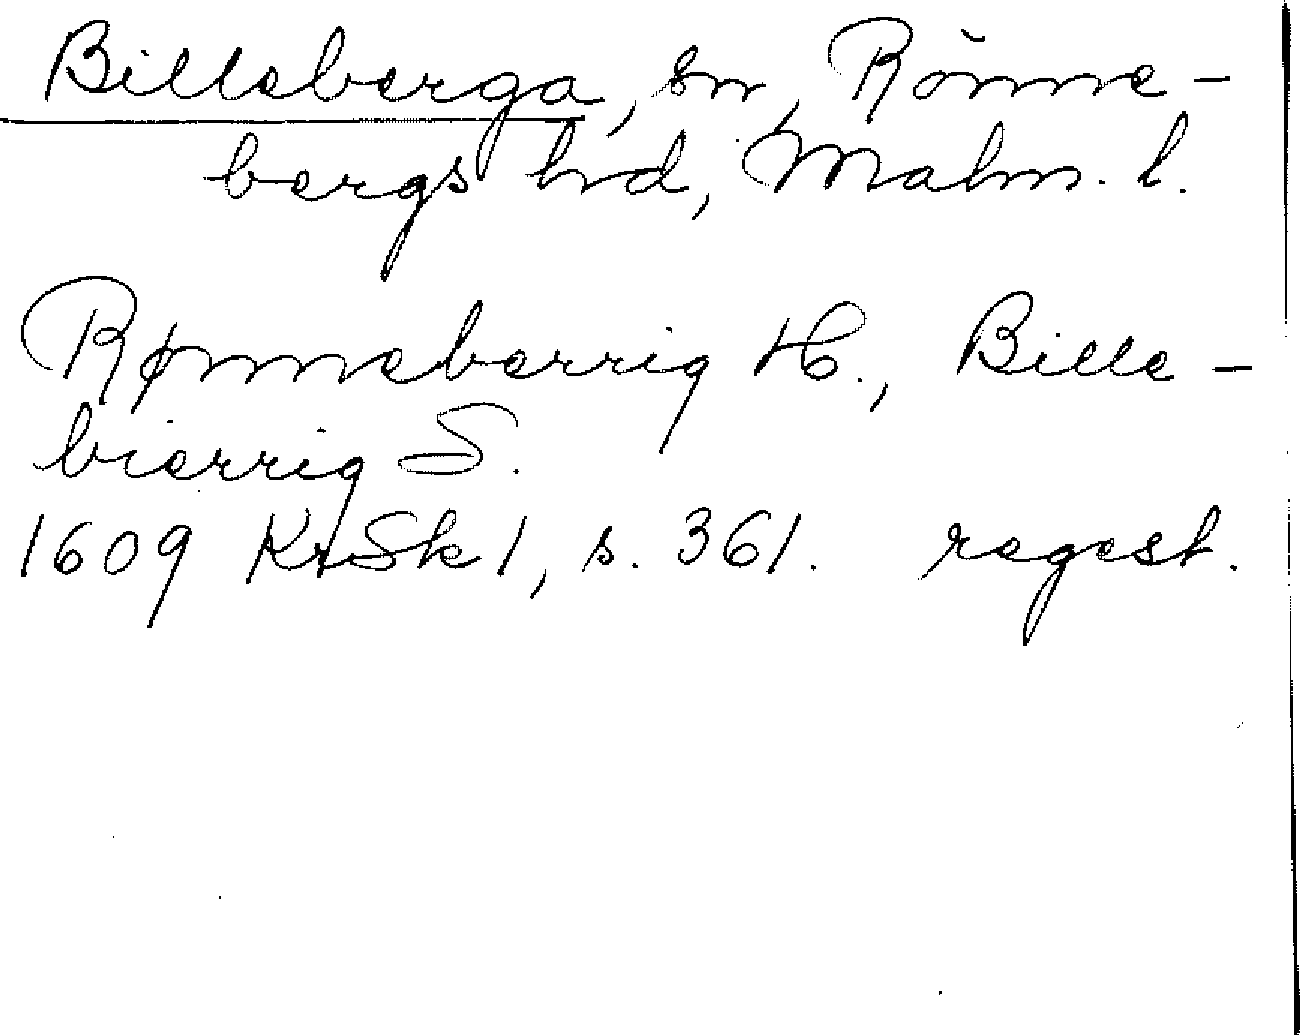 Billeberga, sn, Rönne-
bergs hd, Malm. l.
Rønneberrig H., Bille-
bierrig S.
1609 KrSk 1, s. 361. regest.